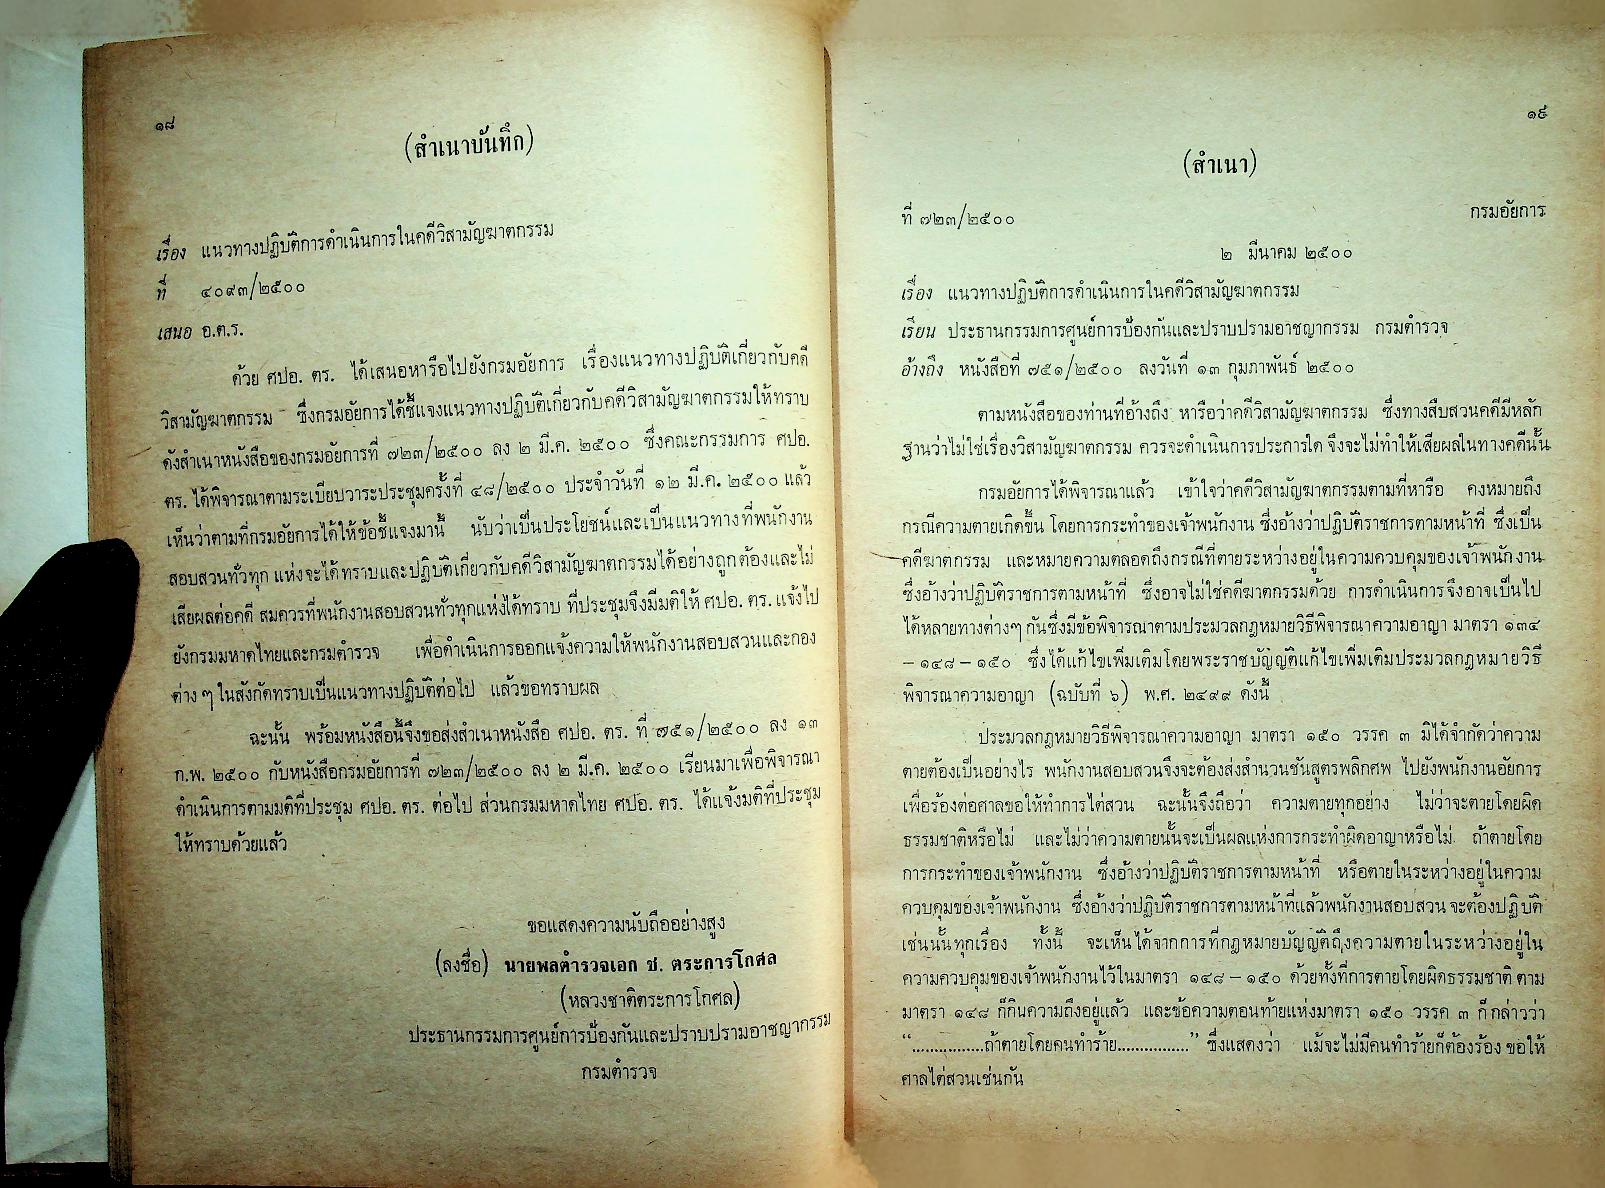 ๑๘
(สำเนาบันทึก)
เรื่อง แนวทางปฏิบัติการดำเนินการในคดีวิสามัญฆาตกรรม
ที่ ๔๐๙๓/๒๕๐๐
เสนอ อ.ต.ร.
ด้วย ศปอ. ตร. ได้เสนอหารือไปยังกรมอัยการ เรื่องแนวทางปฏิบัติเกี่ยวกับคดี
วิสามัญฆาตกรรม ซึ่งกรมอัยการได้ชี้แจงแนวทางปฏิบัติเกี่ยวกับคดีวิสามัญฆาตกรรมให้ทราบ
ดังสำเนาหนังสือของกรมอัยการที่ ๗๒๓/๒๕๐๐ ลง ๒ มี.ค. ๒๕๐๐ ซึ่งคณะกรรมการ ศปอ.
ตร. ได้พิจารณาตามระเบียบวาระประชุมครั้งที่ ๔๘/๒๕๐๐ ประจำวันที่ ๑๒ มี.ค. ๒๕๐๐ แล้ว
เห็นว่าตามที่กรมอัยการได้ให้ข้อชี้แจงมานี้ นับว่าเป็นประโยชน์และเป็นแนวทางที่พนักงาน
สอบสวนทั่วทุก แห่งจะได้ทราบและปฏิบัติเกี่ยวกับคดีวิสามัญฆาตกรรมได้อย่างถูกต้องและไม่
เสียผลต่อคดี สมควรที่พนักงานสอบสวนทั่วทุกแห่งได้ทราบ ที่ประชุมจึงมีมติให้ ศปอ. ตร. แจ้งไป
ยังกรมมหาดไทยและกรมตำรวจ เพื่อดำเนินการออกแจ้งความให้พนักงานสอบสวนและกอง
ต่าง ๆ ในสังกัดทราบเป็นแนวทางปฏิบัติต่อไป แล้วขอทราบผล
ฉะนั้น พร้อมหนังสือนี้จึงขอส่งสำเนาหนังสือ ศปอ. ตร. ที่ ๗๕๑/๒๕๐๐ ลง ๑๓
ก.พ. ๒๕๐๐ กับหนังสือกรมอัยการที่ ๗๒๓/๒๕๐๐ ลง ๒ มี.ค. ๒๕๐๐ เรียนมาเพื่อพิจารณา
ดำเนินการตามมติที่ประชุม ศปอ. ตร. ต่อไป ส่วนกรมมหาดไทย ศปอ. ตร. ได้แจ้งมติที่ประชุม
ให้ทราบด้วยแล้ว
ขอแสดงความนับถืออย่างสูง
(ลงชื่อ) นายพลตำรวจเอก ช. ตระการโกศล
(หลวงชาติตระการโกศล)
ประธานกรรมการศูนย์การป้องกันและปราบปรามอาชญากรรม
กรมตำรวจ
๑๙
(สำเนา)
ที่ ๗๒๓/๒๕๐๐ กรมอัยการ
๒ มีนาคม ๒๕๐๐
เรื่อง แนวทางปฏิบัติการดำเนินการในคดีวิสามัญฆาตกรรม
เรียน ประธานกรรมการศูนย์การป้องกันและปราบปรามอาชญากรรม กรมตำรวจ
อ้างถึง หนังสือที่ ๗๕๑/๒๕๐๐ ลงวันที่ ๑๓ กุมภาพันธ์ ๒๕๐๐
ตามหนังสือของท่านที่อ้างถึง หารือว่าคดีวิสามัญฆาตกรรม ซึ่งทางสืบสวนคดีมีหลัก
ฐานว่าไม่ใช่เรื่องวิสามัญฆาตกรรม ควรจะดำเนินการประการใด จึงจะไม่ทำให้เสียผลในทางคดีนั้น
กรมอัยการได้พิจารณาแล้ว เข้าใจว่าคดีวิสามัญฆาตกรรมตามที่หารือ คงหมายถึง
กรณีความตายเกิดขึ้น โดยการกระทำของเจ้าพนักงาน ซึ่งอ้างว่าปฏิบัติราชการตามหน้าที่ ซึ่งเป็น
คดีฆาตกรรม และหมายความตลอดถึงกรณีที่ตายระหว่างอยู่ในความควบคุมของเจ้าพนักงาน
ซึ่งอ้างว่าปฏิบัติราชการตามหน้าที่ ซึ่งอาจไม่ใช่คดีฆาตกรรมด้วย การดำเนินการจึงอาจเป็นไป
ได้หลายทางต่างๆ กันซึ่งมีข้อพิจารณาตามประมวลกฎหมายวิธีพิจารณาความอาญา มาตรา ๑๓๔
– ๑๔๘ – ๑๕๐ ซึ่งได้แก้ไขเพิ่มเติมโดยพระราชบัญญัติแก้ไขเพิ่มเติมประมวลกฎหมายวิธี
พิจารณาความอาญา (ฉบับที่ ๖) พ.ศ. ๒๔๙๙ ดังนี้
ประมวลกฎหมายวิธีพิจารณาความอาญา มาตรา ๑๕๐ วรรค ๓ มิได้จำกัดว่าความ
ตายต้องเป็นอย่างไร พนักงานสอบสวนจึงจะต้องส่งสำนวนชันสูตรพลิกศพ ไปยังพนักงานอัยการ
เพื่อร้องต่อศาลขอให้ทำการไต่สวน ฉะนั้นจึงถือว่า ความตายทุกอย่าง ไม่ว่าจะตายโดยผิด
ธรรมชาติหรือไม่ และไม่ว่าความตายนั้นจะเป็นผลแห่งการกระทำผิดอาญาหรือไม่ ถ้าตายโดย
การกระทำของเจ้าพนักงาน ซึ่งอ้างว่าปฏิบัติราชการตามหน้าที่ หรือตายในระหว่างอยู่ในความ
ควบคุมของเจ้าพนักงาน ซึ่งอ้างว่าปฏิบัติราชการตามหน้าที่แล้วพนักงานสอบสวน จะต้องปฏิบัติ
เช่นนั้นทุกเรื่อง ทั้งนี้ จะเห็นได้จากการที่กฎหมายบัญญัติถึงความตายในระหว่างอยู่ใน
ความควบคุมของเจ้าพนักงานไว้ในมาตรา ๑๔๘ – ๑๕๐ ด้วยทั้งที่การตายโดยผิดธรรมชาติ ตาม
มาตรา ๑๔๘ ก็กินความถึงอยู่แล้ว และข้อความตอนท้ายแห่งมาตรา ๑๕๐ วรรค ๓ ก็กล่าวว่า
“................ถ้าตายโดยคนทำร้าย................” ซึ่งแสดงว่า แม้จะไม่มีคนทำร้ายก็ต้องร้อง ขอให้
ศาลไต่สวนเช่นกัน